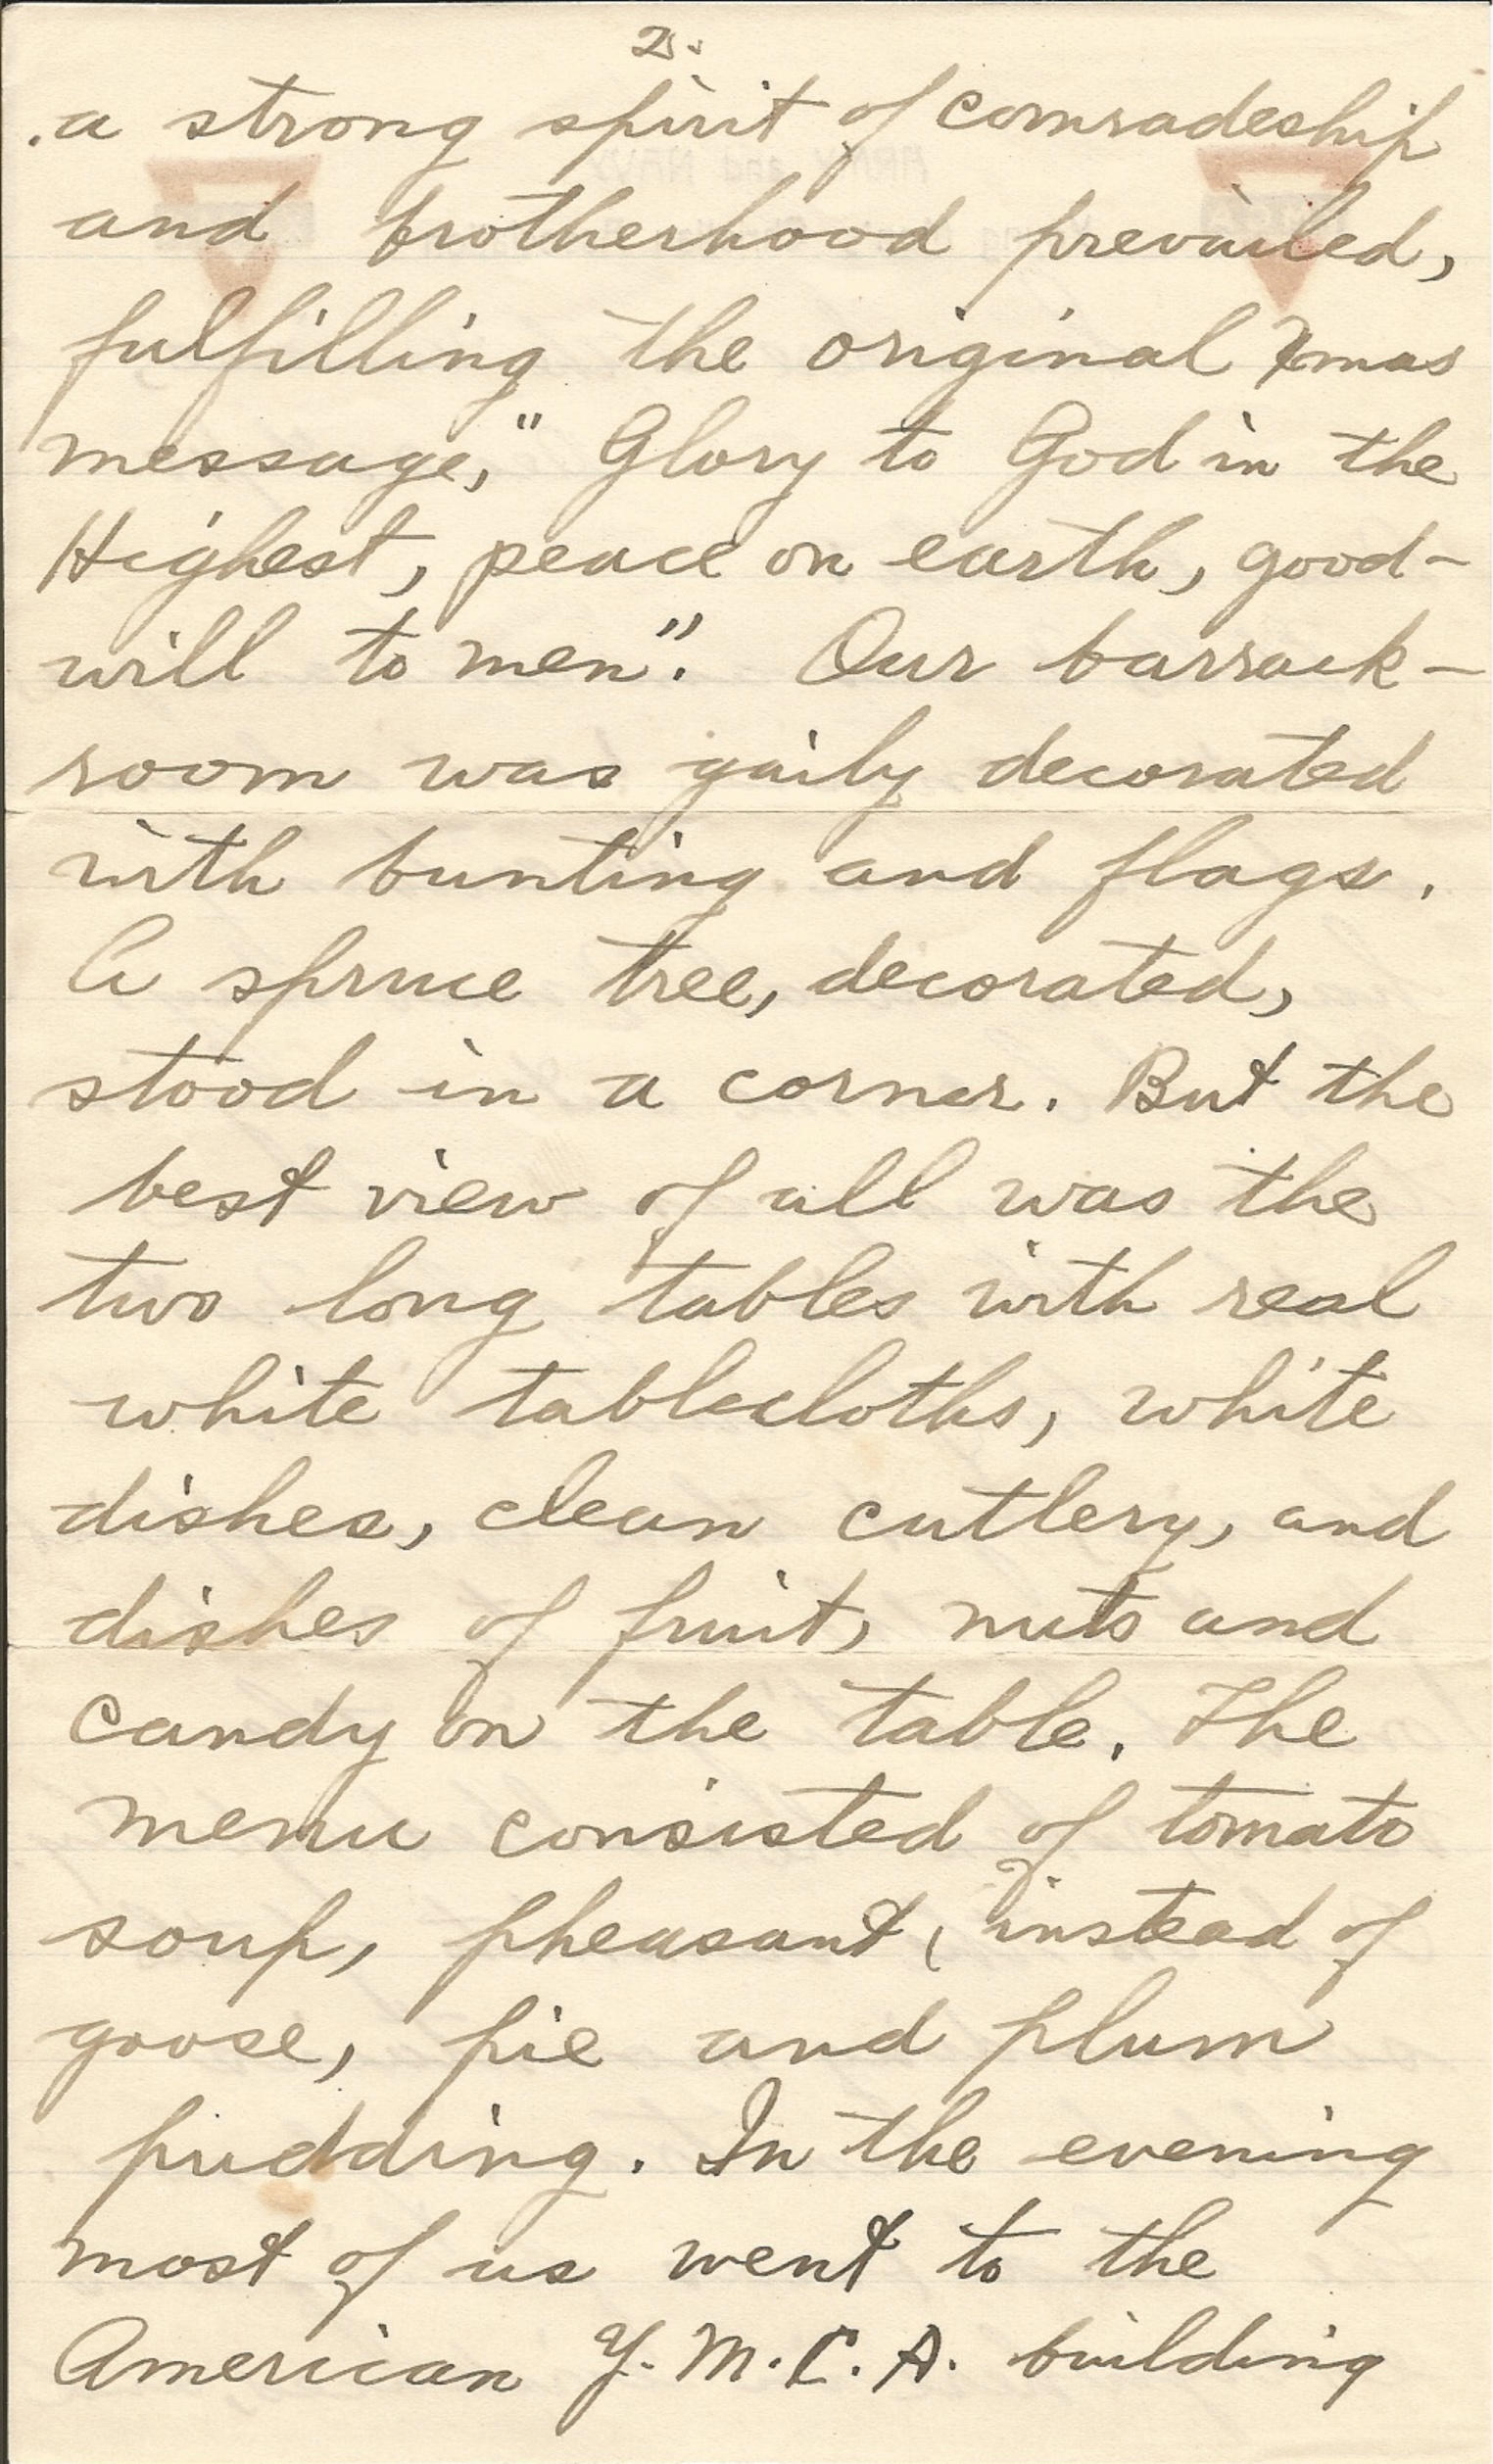 2.
a strong spirit of comradeship
and brotherhood prevailed,
fulfilling the original Xmas
message, "Glory to God in the
Highest, peace on earth, good-
will to men". Our barrack-
room was gaily decorated
with bunting and flags.
A spruce tree, decorated,
stood in a corner. But the
best view of all was the
two long tables with real
white tablecloths, white
dishes, clean cutlery, and
dishes of fruit, nuts and
candy on the table. The
menu consisted of tomato
soup, pheasant, instead of
goose, pie and plum
pudding. In the evening
most of us went to the
American Y.M.C.A. building
ARMY and NAVY